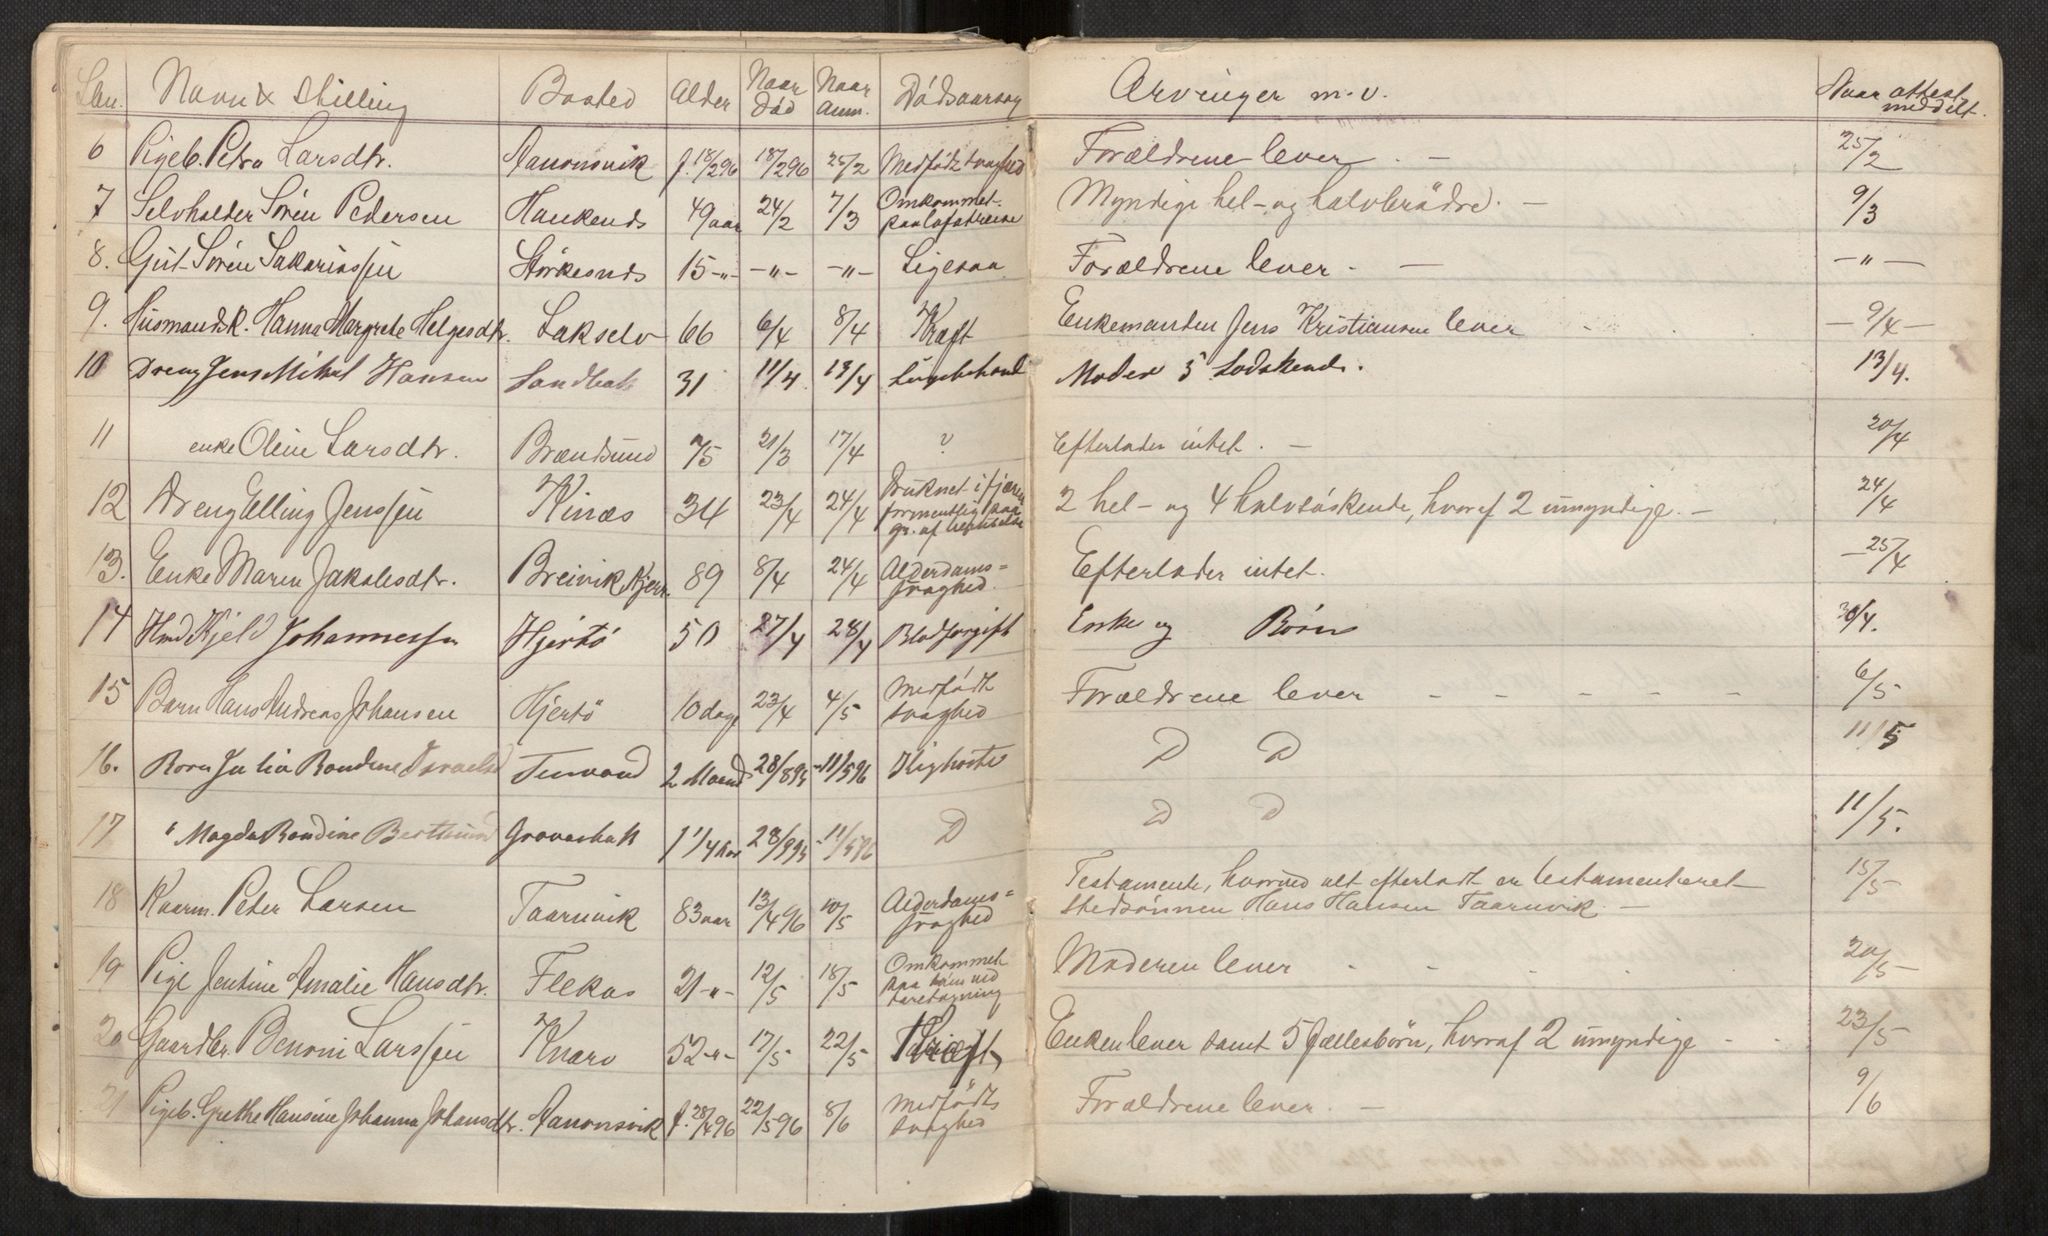 Navn & Stilling Bosted Alder Naar Død Naar Anm. Dødsaarsag Arvinger m.v. Naar attest meddelt.
6 Pigeb. Petra Larsdtr. Aanonsvik f. 18/2 96 18/2 96 25/2 Medfødt svaghed Forældrene lever. — 25/2
7 Selvholder Søren Pedersen 49 aar 24/2 7/3 Omkommet Myndige hel- og halvbrødre. — 9/3
8. Gut Søren Sakariassen 15 -„- -„- -„- Ligesaa Forældrene lever. — -„-
9. Husmandsk. Hanna Margrete Helgesdtr. Lakselv 66 6/4 8/4 Kræft Enkemanden Jens Kristiansen lever — 9/4 —
10 Dreng Jens Mikal Hansen 31 11/4 13/4 Moder 5 13/4.
11 enke Oline Larsdtr. Brændsund 75 21/3 17/4 ? Efterlader intet. — 20/4
12 Dreng Elling Jenssen Kinæs 34 23/4 24/4 Druknet i fjæren formentlig paa gr. af 2 hel- og 4 halvsøskende, hvoraf 2 umyndige. — 24/4
13. Enke Maren Jakobsdtr. Breivik 89 8/4 24/4 Alderdoms= svaghed. Efterlader intet. — 25/4
14 Kjeld Johannessen Hjertø 50 27/4 28/4 Blodforgift Enke og Børn 30/4.
15 Barn Hans Andreas Johansen Hjertø 10 dage 23/4 4/5 Medfødt svaghed Forældrene lever - - - - - 6/5
16. Barn Julia Bondine 2 Maand 28/8 95 11/5 96 Kighoste D D 11/5
17 " Magda Bondine 1 1/4 Aar 28/9 95 11/5 96 D D D 11/5.
18 Kaarm. Peter Larsen Taarnvik 83 aar 13/4 96 10/5 Alderdoms= svaghed Testamente, hvorved alt efterladt er testamenteret
stedsønnen Hans Hansen Taarnvik. — 15/5
19 Pige Jentine Amalie Hansdtr. Flekas 21 -„- 12/5 18/5 Omkommet paa havn ved Moderen lever - - - - 20/5 —
20 Gaardbr. Benoni Larssen Knarv 52 -„- 17/5 22/5 Kræft Enken lever samt 5 fællesbørn, hvoraf 2 umyndige - - 23/5
21 Pigeb. Grethe Hansine Johanna Johansdtr. Aanonsvik f. 28/4 96 22/5 96 8/6 Medfødt svaghed Forældrene lever. — 9/6